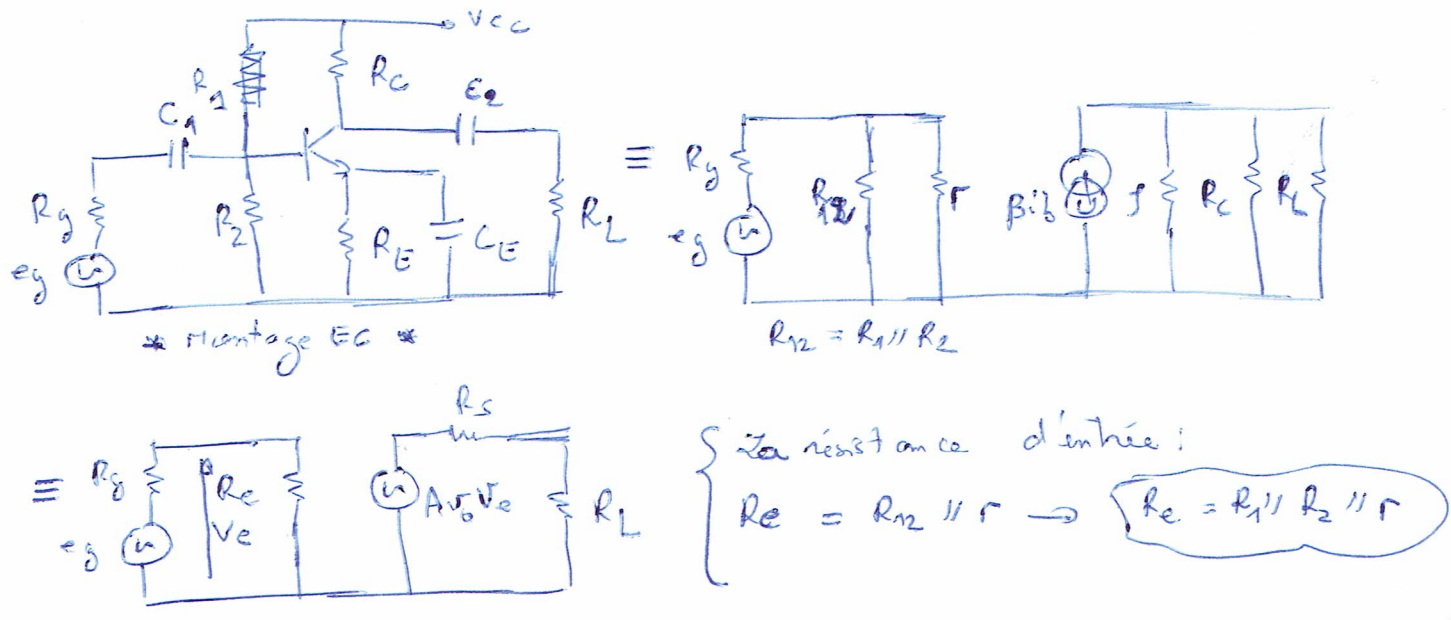 Vcc
R1
Rc
C2
C1
Rg
R2
RE
CE
RL
eg
* Montage EC *
≡
Rg
R12
r
βib
ρ
Rc
RL
eg
R12 = R1 // R2
≡
Rg
Re
Ve
eg
Rs
Av0 Ve
RL
La résistance d'entrée :
Re = R12 // r → Re = R1 // R2 // r